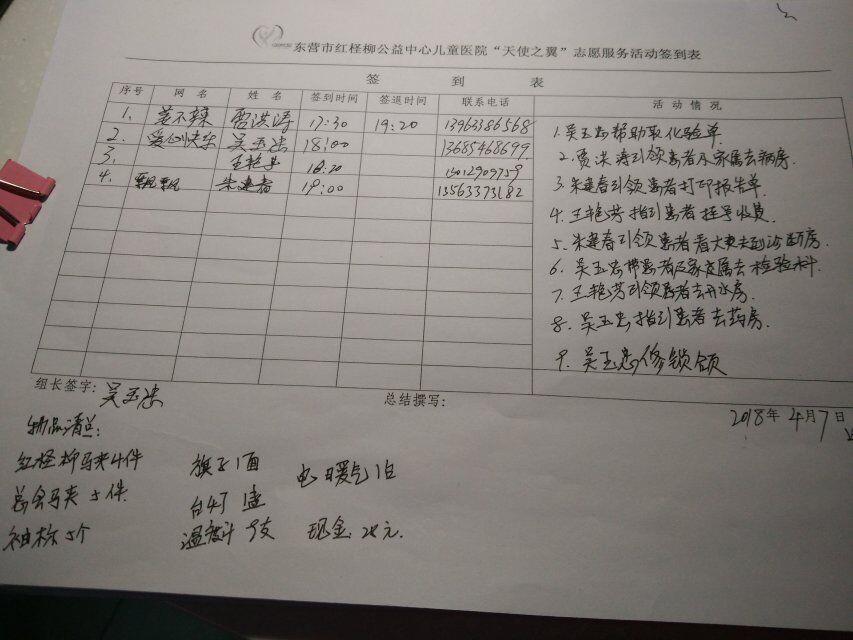 东营市红柽柳公益中心儿童医院“天使之翼”志愿服务活动签到表
签到表
序号 网名 姓名 签到时间 签退时间 联系电话 活动情况
1、 姜不辣 贾洪涛 17:30 19:20 13963386568
2、 爱心快车 吴玉忠 18:00 13685468699
3、 王艳芳 18:20 15012909759
4、 飘飘 朱建春 19:00 13563373182
1、吴玉忠帮助取化验单.
2、贾洪涛引领患者及家属去病房.
3、朱建春引领患者打印报告单.
4、王艳芳指引患者挂号收费.
5、朱建春引领患者看大夫去到诊断房.
6、吴玉忠带患者及家属去检验科.
7、王艳芳引领患者去开水房.
8、吴玉忠指引患者去药房.
9、吴玉忠修锁
组长签字: 吴玉忠 总结撰写:
2018年4月7日
物品清单:
红柽柳马夹4件 旗子1面 电暖气1台
总会马夹5件 台灯1盏
袖标5个 温度计 现金 元.